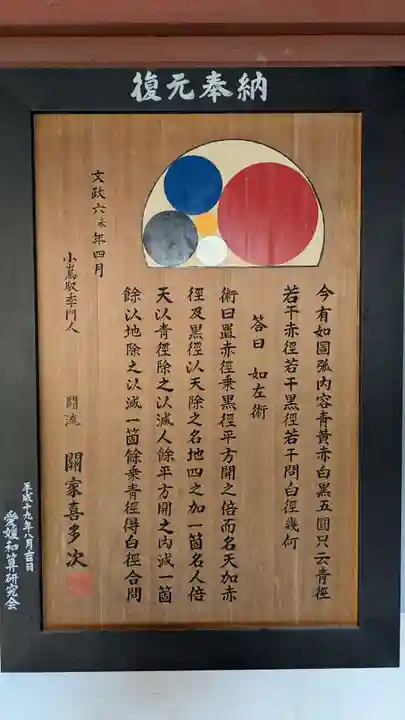 復元奉納
今有如圖弧内容青黄赤白黒五圓只云青徑
若干赤徑若干黒徑若干問白徑幾何
答曰 如左術
術曰置赤徑乗黒徑平方開之倍而名天加赤
徑及黒徑以天除之名地四之加一箇名人倍
天以青徑除之以減人餘平方開之内減一箇
餘以地除之以減一箇餘乗青徑得白徑合問
關流 關家喜多次
小嶌馭季門人
文政六未年四月
平成十九年八月吉日
愛媛和算研究会